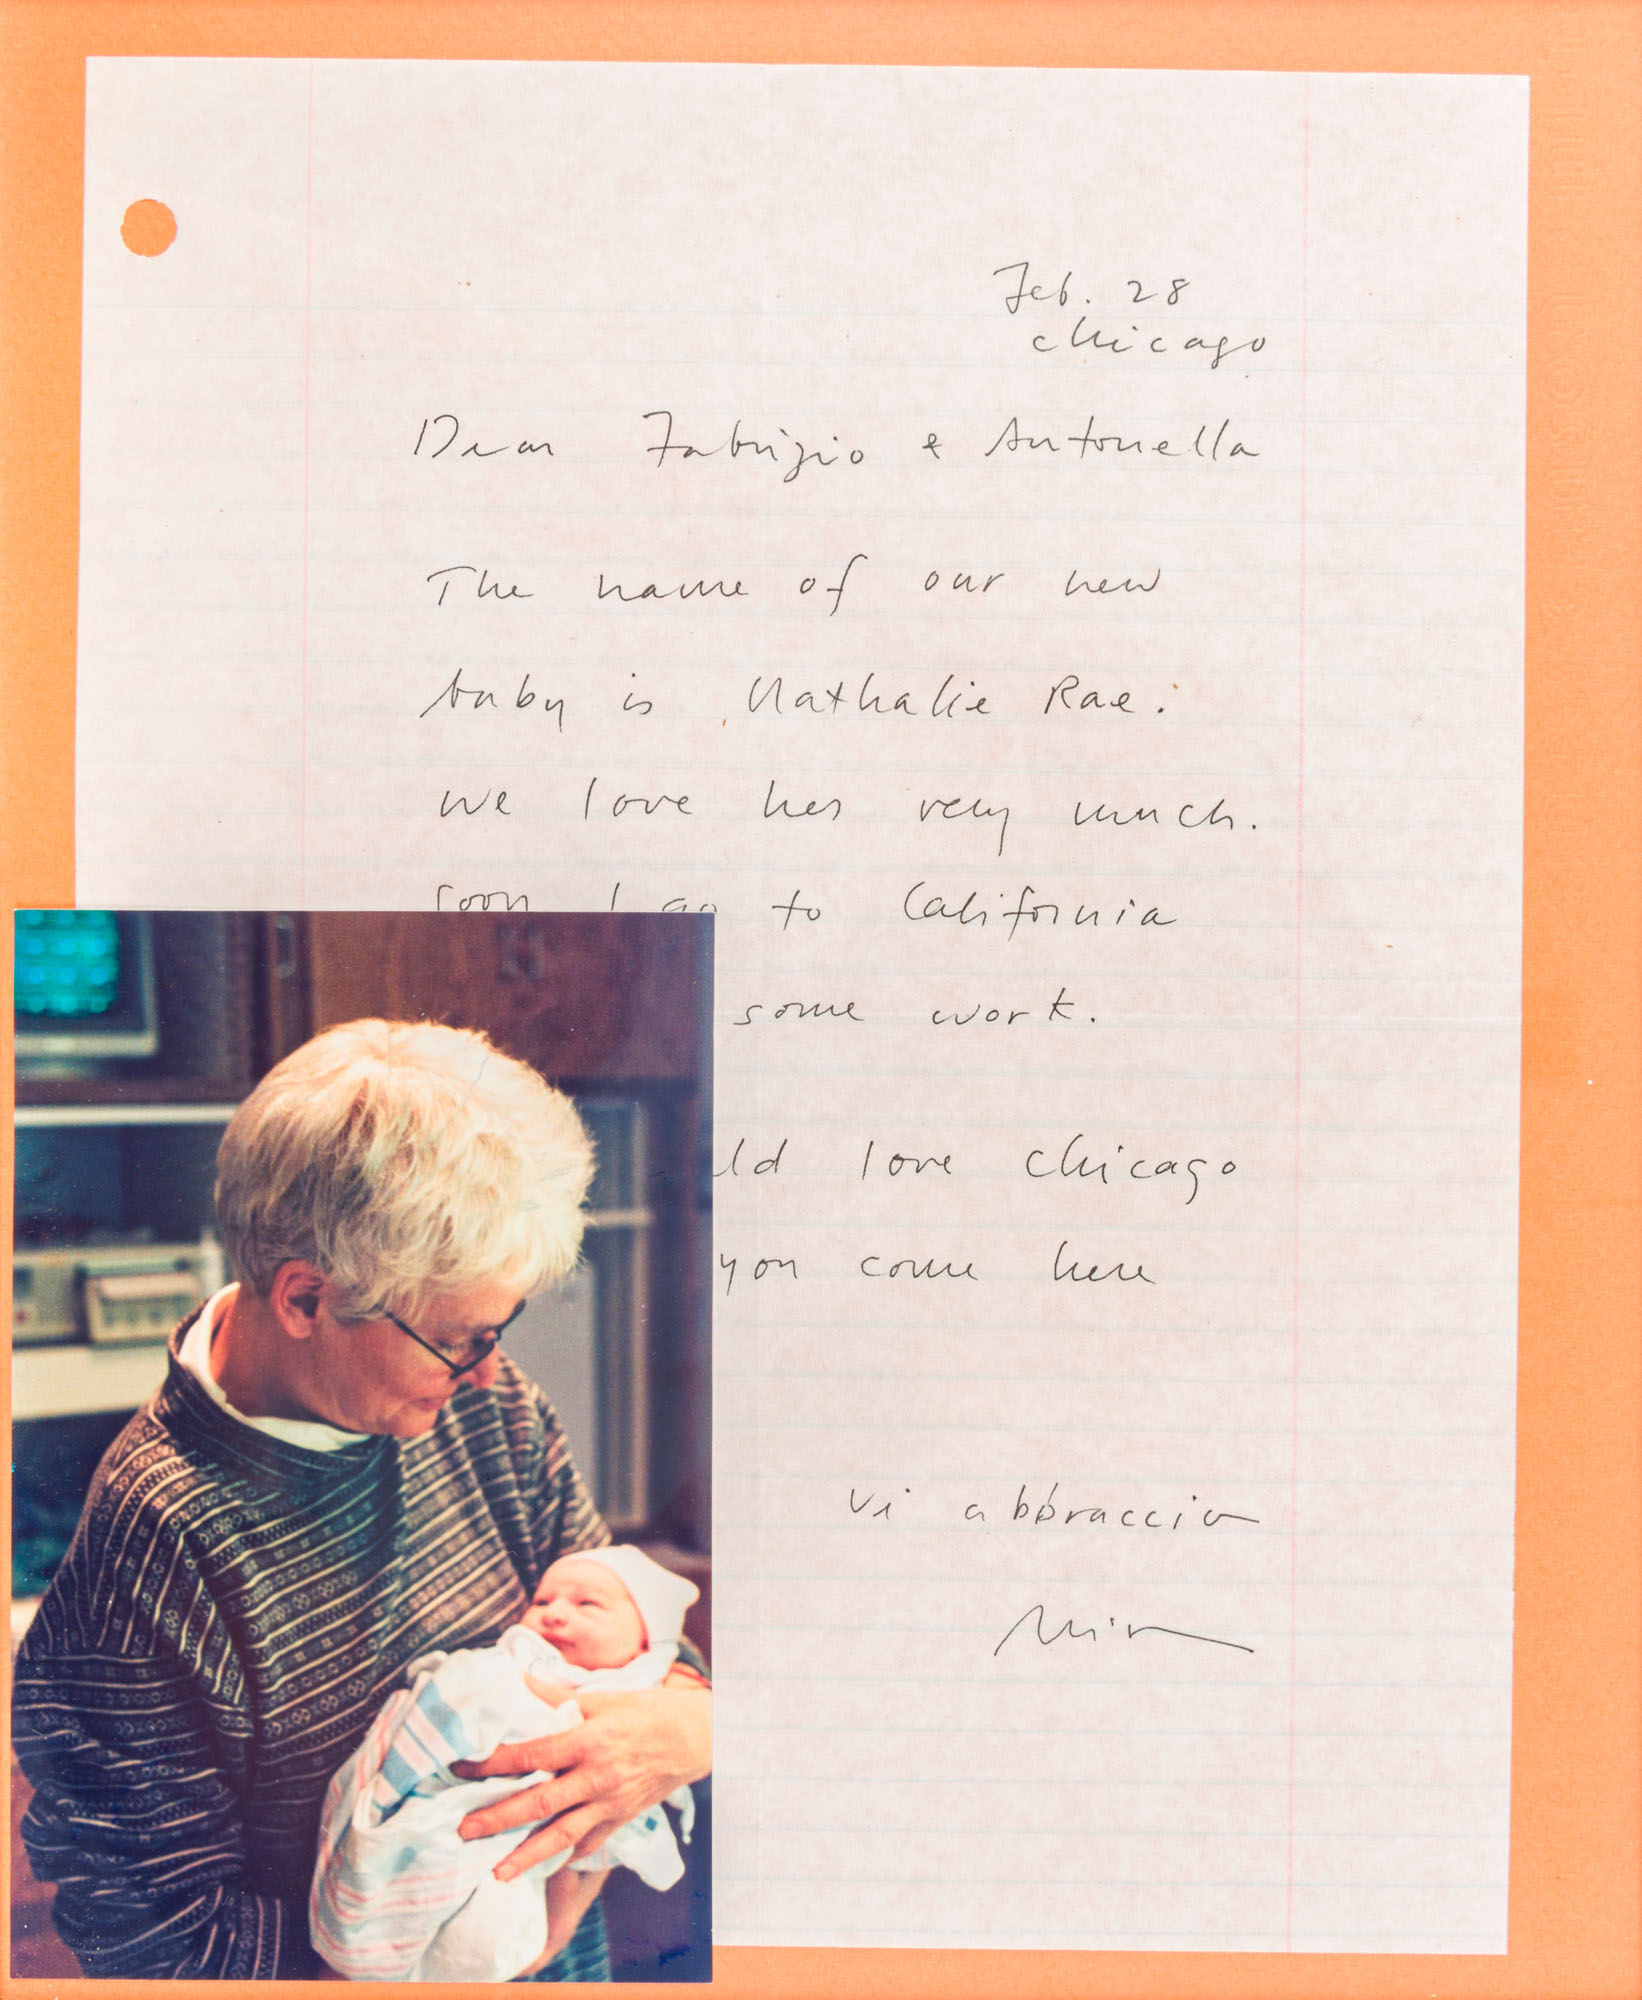 Feb. 28
Chicago
Dear Fabrizio & Antonella
The name of our new
baby is Nathalie Rae.
we love her very much.
soon I go to California
some work.
ld love Chicago
you come here
vi abbraccio